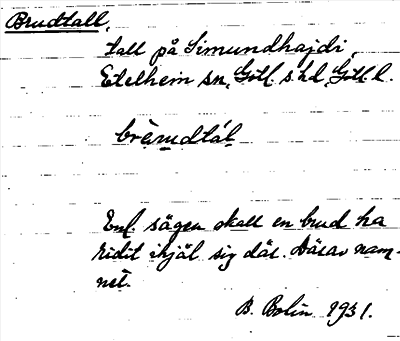 Brudtall,
tall på Simundhajdi,
Etelhem sn, Gotl. s hd, Gotl. l.
Enl. sägen skall en brud ha
ridit ihjäl sig där. Därav nam-
net.
B. Bolin 1931.